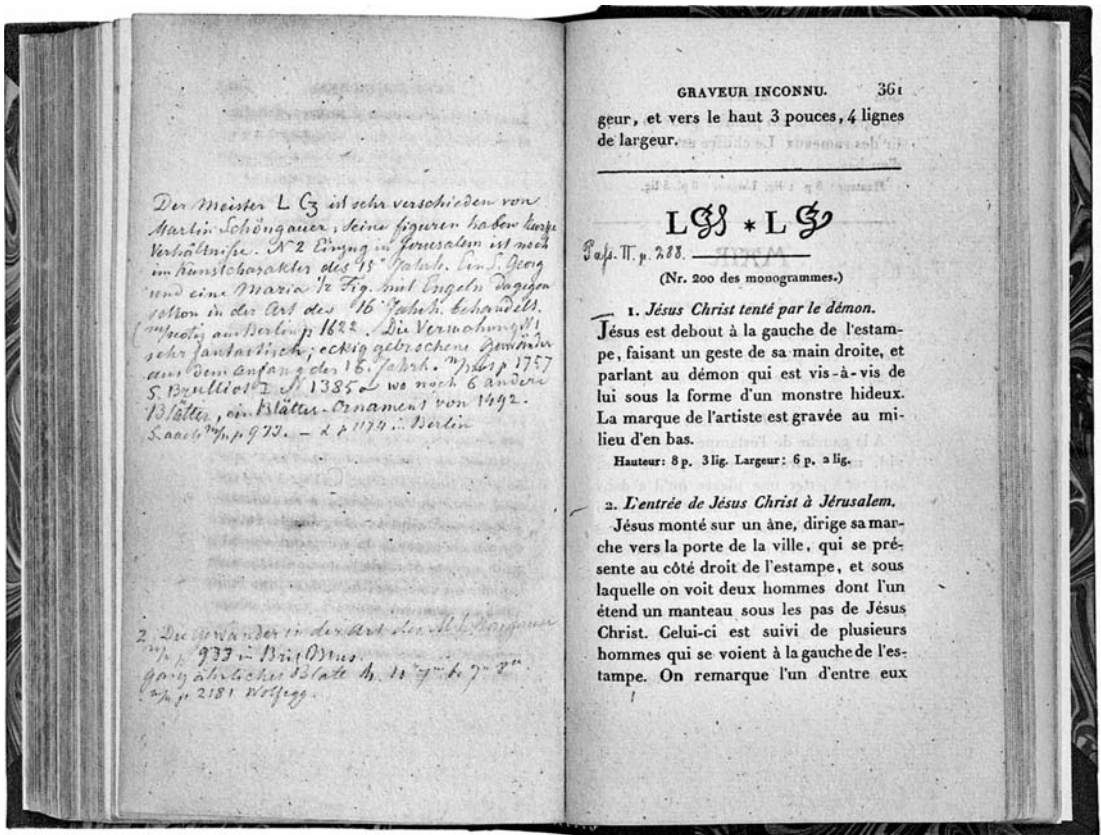 Der Meister L Cz ist sehr verschieden von
Martin Schöngauer, seine figuren haben kurze
Verhältniße. N 2 Einzug in Jerusalem ist noch
im Kunstcharakter des 15ⁿ Jahrh. Ein S. Georg
und eine Maria ½ Fig. mit Engeln dagegen
schon in der Art des 16 Jahrh. behandelt.
aus Berlin p 1622. Die Versuchung N 1
sehr fantastisch; eckig gebrochene Gewänder
aus dem Anfang des 16. Jahrh. p 1757
S. Brulliot I N 1385 wo noch 6 andere
Blätter, ein Blätter-Ornament von 1492.
p 933. — 2 p 1174 Berlin
2. Die Gewänder in der Art des
p 933 in Brit. Mus.
ganz ähnliches
p 2181 Wolfegg.
GRAVEUR INCONNU. 361
geur, et vers le haut 3 pouces, 4 lignes
de largeur.
L G * L G
Paß. II. p. 288.
(Nr. 200 des monogrammes.)
1. Jésus Christ tenté par le démon.
Jésus est debout à la gauche de l'estam-
pe, faisant un geste de sa main droite, et
parlant au démon qui est vis-à-vis de
lui sous la forme d'un monstre hideux.
La marque de l'artiste est gravée au mi-
lieu d'en bas.
Hauteur: 8 p. 3 lig. Largeur: 6 p. 2 lig.
2. L'entrée de Jésus Christ à Jérusalem.
Jésus monté sur un âne, dirige sa mar-
che vers la porte de la ville, qui se pré-
sente au côté droit de l'estampe, et sous
laquelle on voit deux hommes dont l'un
étend un manteau sous les pas de Jésus
Christ. Celui-ci est suivi de plusieurs
hommes qui se voient à la gauche de l'es-
tampe. On remarque l'un d'entre eux